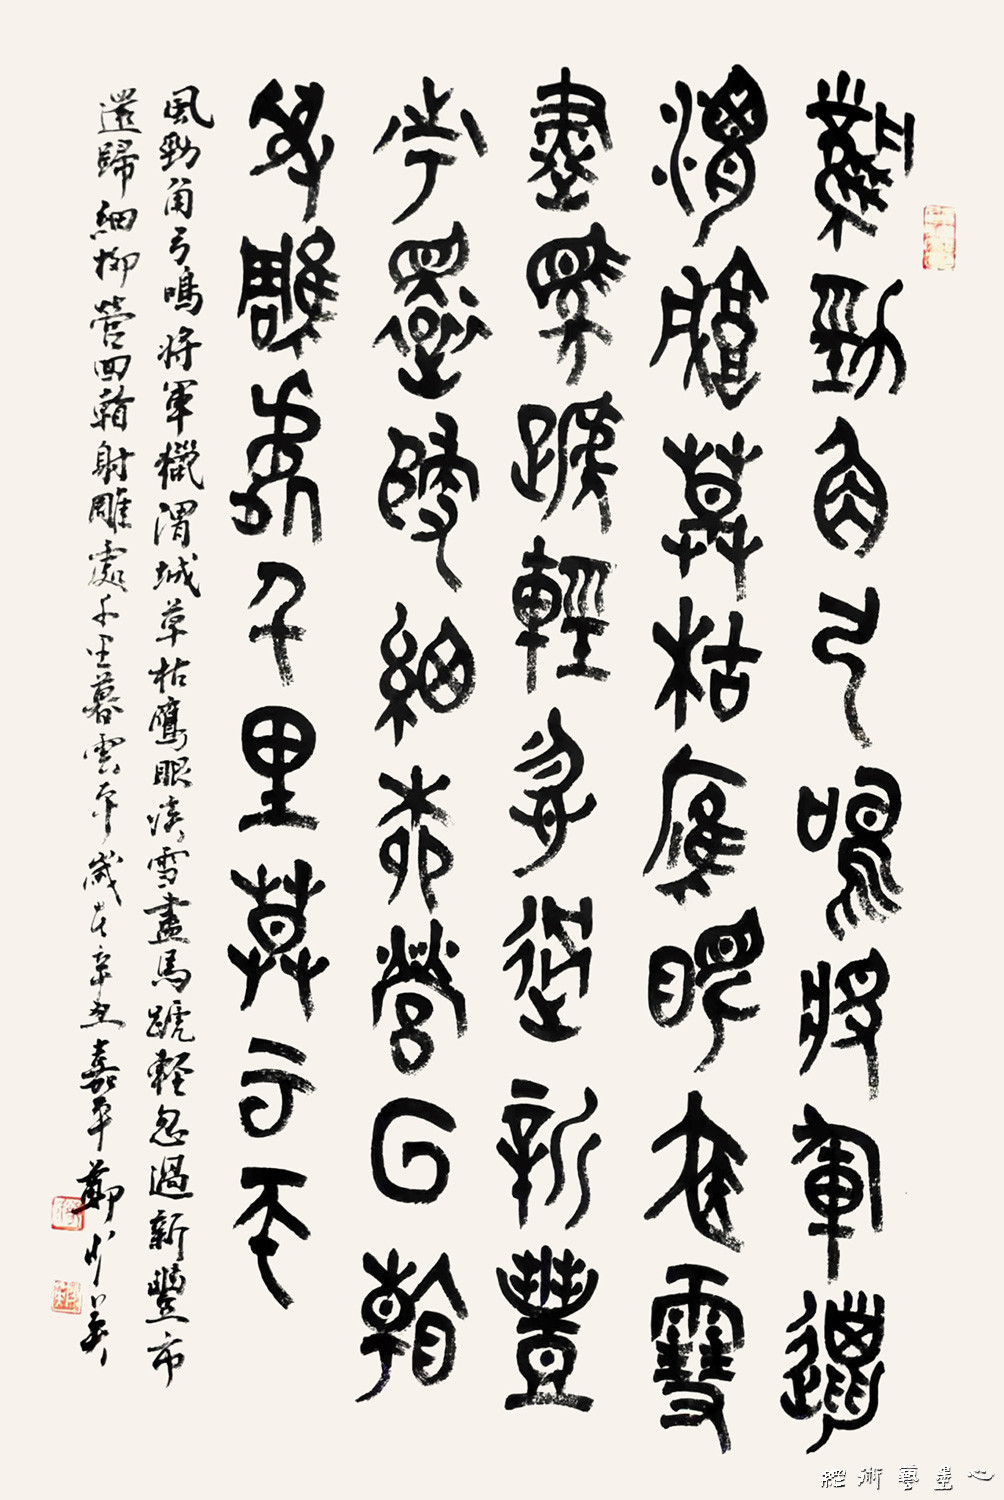 風勁角弓鳴將軍獵
渭城草枯鷹眼疾雪
盡馬蹏輕忽過新豐
市還歸細柳營回翰
射雕處千里暮雲平
風勁角弓鳴將軍獵渭城草枯鷹眼疾雪盡馬蹏輕忽過新豐市
還歸細柳營回翰射雕處千里暮雲平歲在辛丑嘉平鄭
心墨藝術